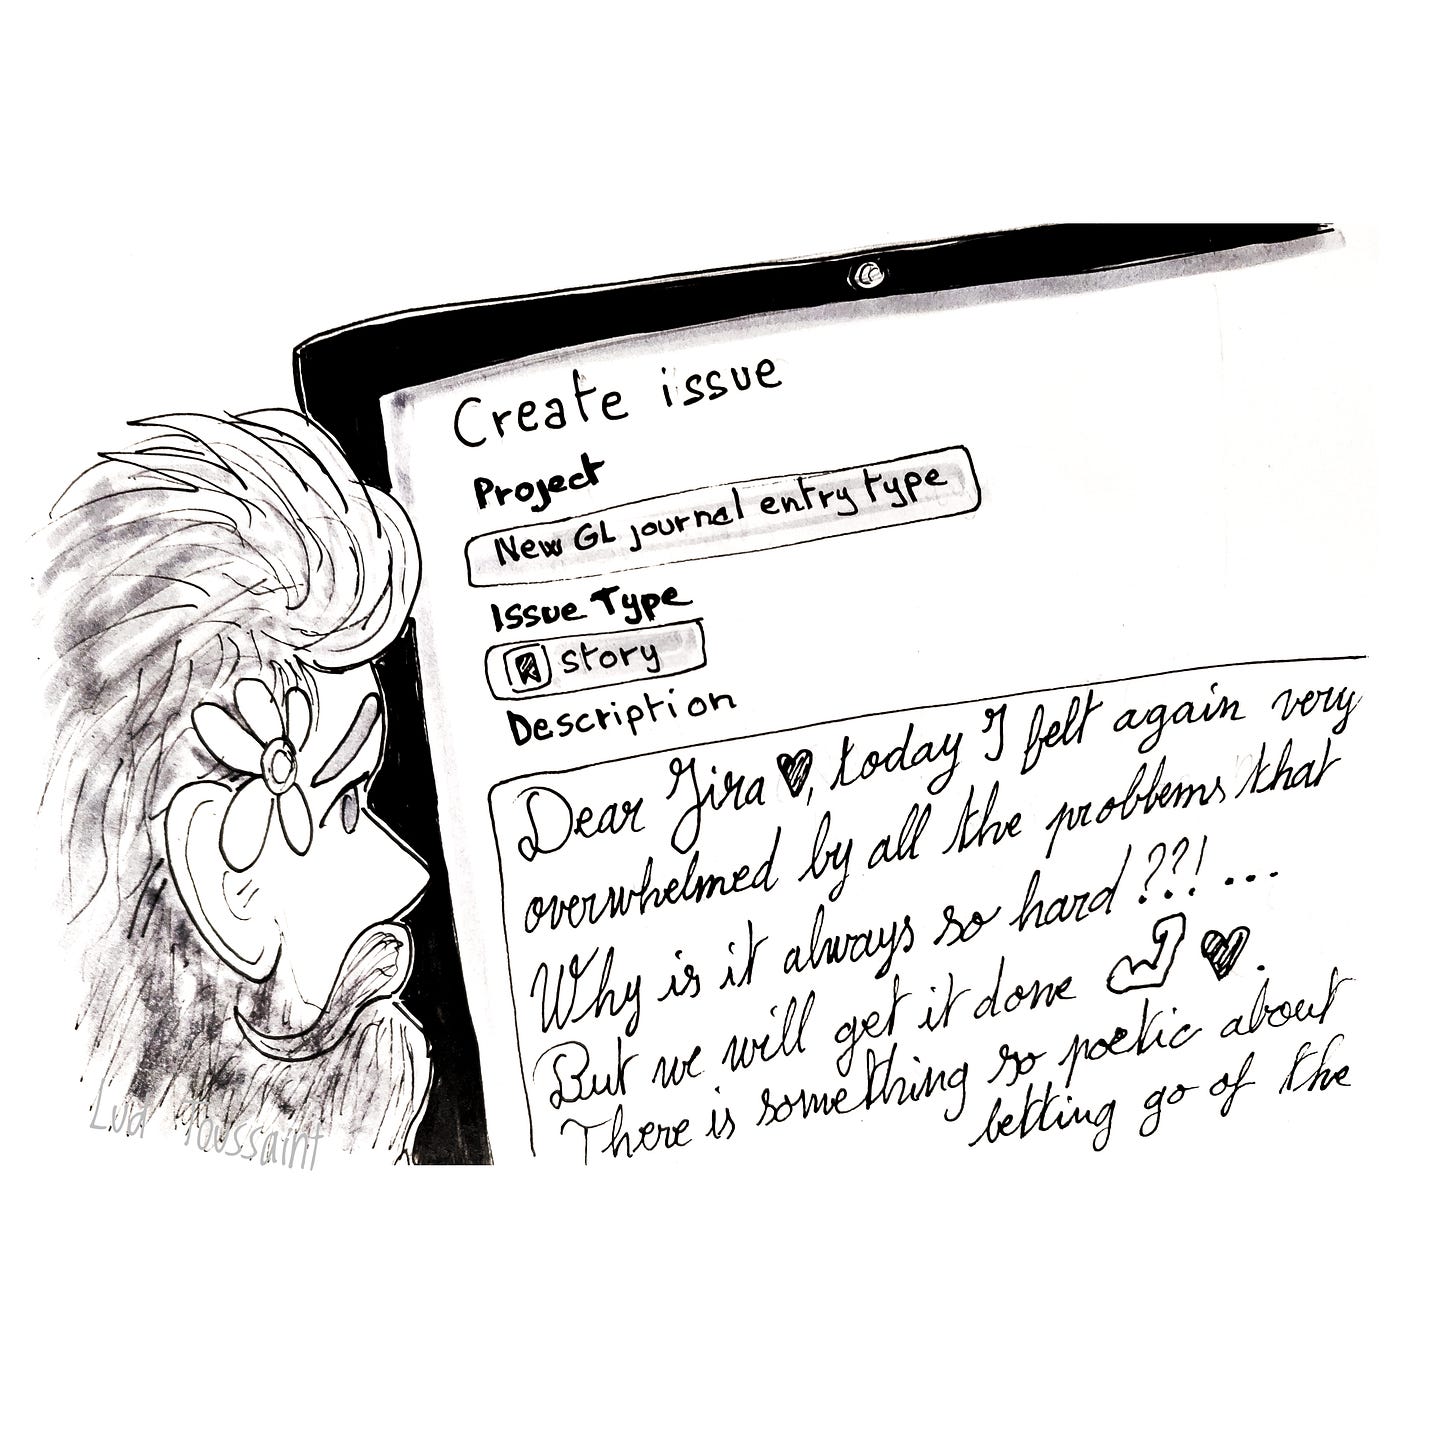 Create issue
Project
New GL journal entry type
Issue Type
story
Description
Dear Jira ♥, today I felt again very
overwhelmed by all the problems that
Why is it always so hard ??! ...
But we will get it done 💪 ♥.
There is something so poetic about
letting go of the
Lud Toussaint